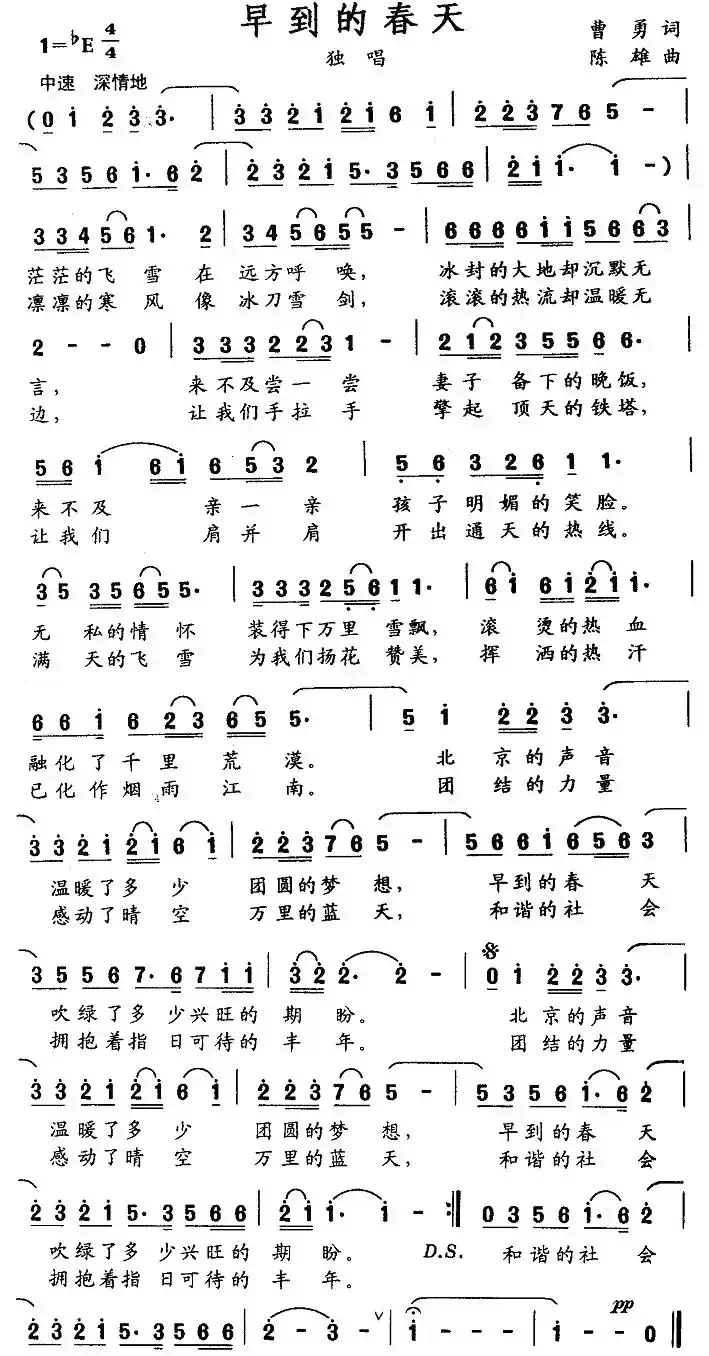 早到的春天
1=♭E 4/4
独唱
曹勇词
陈雄曲
中速 深情地
(0 1 2 3 3· | 3 3 2 1 2 1 6 1 | 2 2 3 7 6 5 - |
5 3 5 6 1· 6 2 | 2 3 2 1 5· 3 5 6 6 | 2 1 1· 1 -) |
3 3 4 5 6 1· 2 | 3 4 5 6 5 5 - | 6 6 6 6 1 1 5 6 6 3 |
茫茫的飞雪在远方呼唤, 冰封的大地却沉默无
凛凛的寒风像冰刀雪剑, 滚滚的热流却温暖无
2 - - 0 | 3 3 3 2 2 3 1 - | 2 1 2 3 5 5 6 6· |
言, 来不及尝一尝 妻子备下的晚饭,
边, 让我们手拉手 擎起顶天的铁塔,
5 6 1 6 1 6 5 3 2 | 5 6 3 2 6 1 1· |
来不及亲一亲 孩子明媚的笑脸。
让我们肩并肩 开出通天的热线。
3 5 3 5 6 5 5· | 3 3 3 2 5 6 1 1· | 6 1 6 1 2 1 1· |
无私的情怀 装得下万里雪飘, 滚烫的热血
满天的飞雪 为我们扬花赞美, 挥洒的热汗
6 6 1 6 2 3 6 5 5· | 5 1 2 2 3 3· |
融化了千里荒漠。 北京的声音
已化作烟雨江南。 团结的力量
3 3 2 1 2 1 6 1 | 2 2 3 7 6 5 - | 5 6 6 1 6 5 6 3 |
温暖了多少 团圆的梦想, 早到的春天
感动了晴空 万里的蓝天, 和谐的社会
3 5 5 6 7· 6 7 1 1 | 3 2 2· 2 - | 0 1 2 2 3 3· |
吹绿了多少兴旺的期盼。 北京的声音
拥抱着指日可待的丰年。 团结的力量
3 3 2 1 2 1 6 1 | 2 2 3 7 6 5 - | 5 3 5 6 1· 6 2 |
温暖了多少 团圆的梦想, 早到的春天
感动了晴空 万里的蓝天, 和谐的社会
2 3 2 1 5· 3 5 6 6 | 2 1 1· 1 - :‖ 0 3 5 6 1· 6 2 |
吹绿了多少兴旺的期盼。 D.S. 和谐的社会
拥抱着指日可待的丰年。
pp
2 3 2 1 5· 3 5 6 6 | 2 - 3 - ∨ | 1 - - - | 1 - - 0 ‖